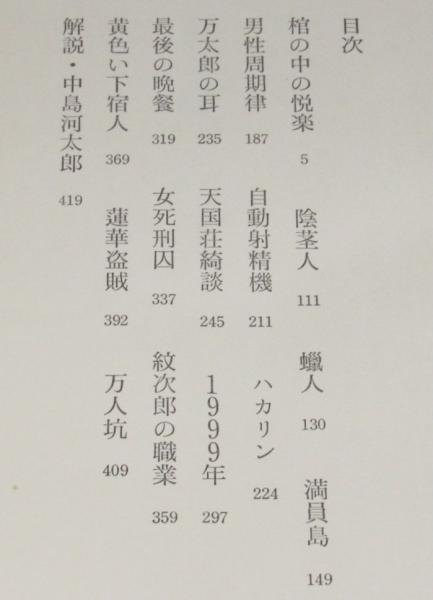 目次
棺の中の悦楽 5 陰茎人 111 蠟人 130 満員島 149
男性周期律 187 自動射精機 211 ハカリン 224
万太郎の耳 235 天国荘綺談 245 1999年 297
最後の晩餐 319 女死刑囚 337 紋次郎の職業 359
黄色い下宿人 369 蓮華盗賊 392 万人坑 409
解説・中島河太郎 419